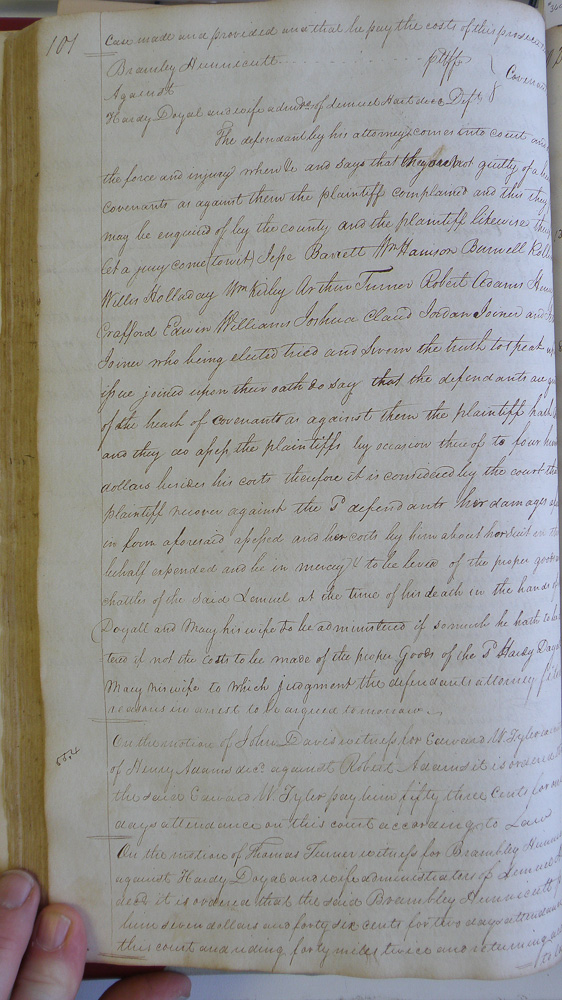 101
Case made and provided and that he pay the costs of this prosecu
Brambley Hunnicutt . . . . . . . . . . . . pltff
Against } Covenan
Hardy Doyal and wife admrs. of Lemuel Hart decd Deft
The defendant by his attorney comes into court and
the force and injury when &c and says that they are not guilty of a
covenants as against them the plaintiff complained and this they
may be enquired of by the county and the plaintiff likewise
let a jury come (towit) Jesse Barrett Wm Harrison Burwell
Willis Holladay Wm Kirby Arthur Turner Robert Adams
Crafford Edwin Williams Joshua Claud Jordan Joiner and
Joiner who being elected tried and sworn the truth to speak
issue joined upon their oath do say that the defendants are
of the breach of covenants as against them the plaintiff hath
and they do assess the plaintiffs by occasion thereof to four
dollars besides his costs therefore it is considered by the court
plaintiff recover against the sd defendants her damages
in form aforesaid assessed and her costs by him about her suit in
behalf expended and be in mercy &c to be levied of the proper goods
chattles of the said Lemuel at the time of his death in the hands
Doyall and Mary his wife to be administered if so much he hath to
tred if not the costs to be made of the proper Goods of the sd Hardy
Mary his wife to which judgment the defendants attorney
reasons in arrest to be argued tomorrow
On the motion of John Davis witness for Edward W. Tyler
of Henry Adams decd. against Robert Adams it is ordered
the said Edward W. Tyler pay him fifty three Cents for
days attendance on this court according to Law
On the motion of Thomas Turner witness for Brambley
against Hardy Doyal and wife administrators of Lemuel
decd it is ordered that the said Brambley Hunnicutt
him seven dollars and forty six cents for two days
this court and riding forty miles twice and returning